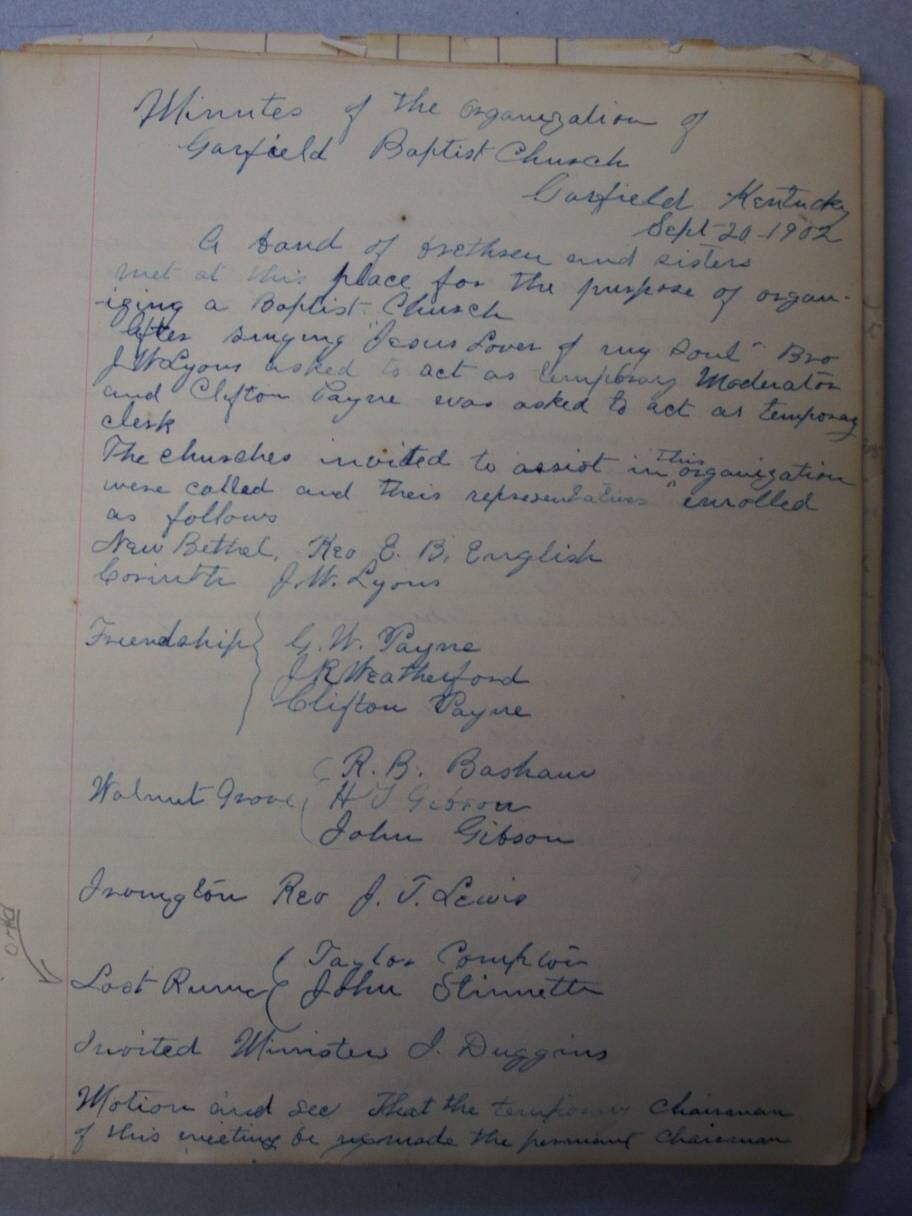 Minutes of the organization of
Garfield Baptist Church
Garfield Kentucky
Sept 20 1902
A band of brethren and sisters
met at this place for the purpose of organ-
-izing a Baptist Church
After singing "Jesus Lover of my Soul" Bro
J. W. Lyons asked to act as temporary Moderator
and Clifton Payne was asked to act as temporay
clerk
The churches invited to assist in this organization
were called and their representatives enrolled
as follows
New Bethel, Rev E. B. English
Corinth J. W. Lyons
Friendship G. W. Payne
J R Weatherford
Clifton Payne
R. B. Basham
Walnut Grove H T Gibson
John Gibson
Irvington Rev J. T. Lewis
Taylor Compton
Lost Run John Stinnett
Invited Ministers J. Duggins
Motion and sec That the temporary Chairman
of this meeting be made the permanent Chairman